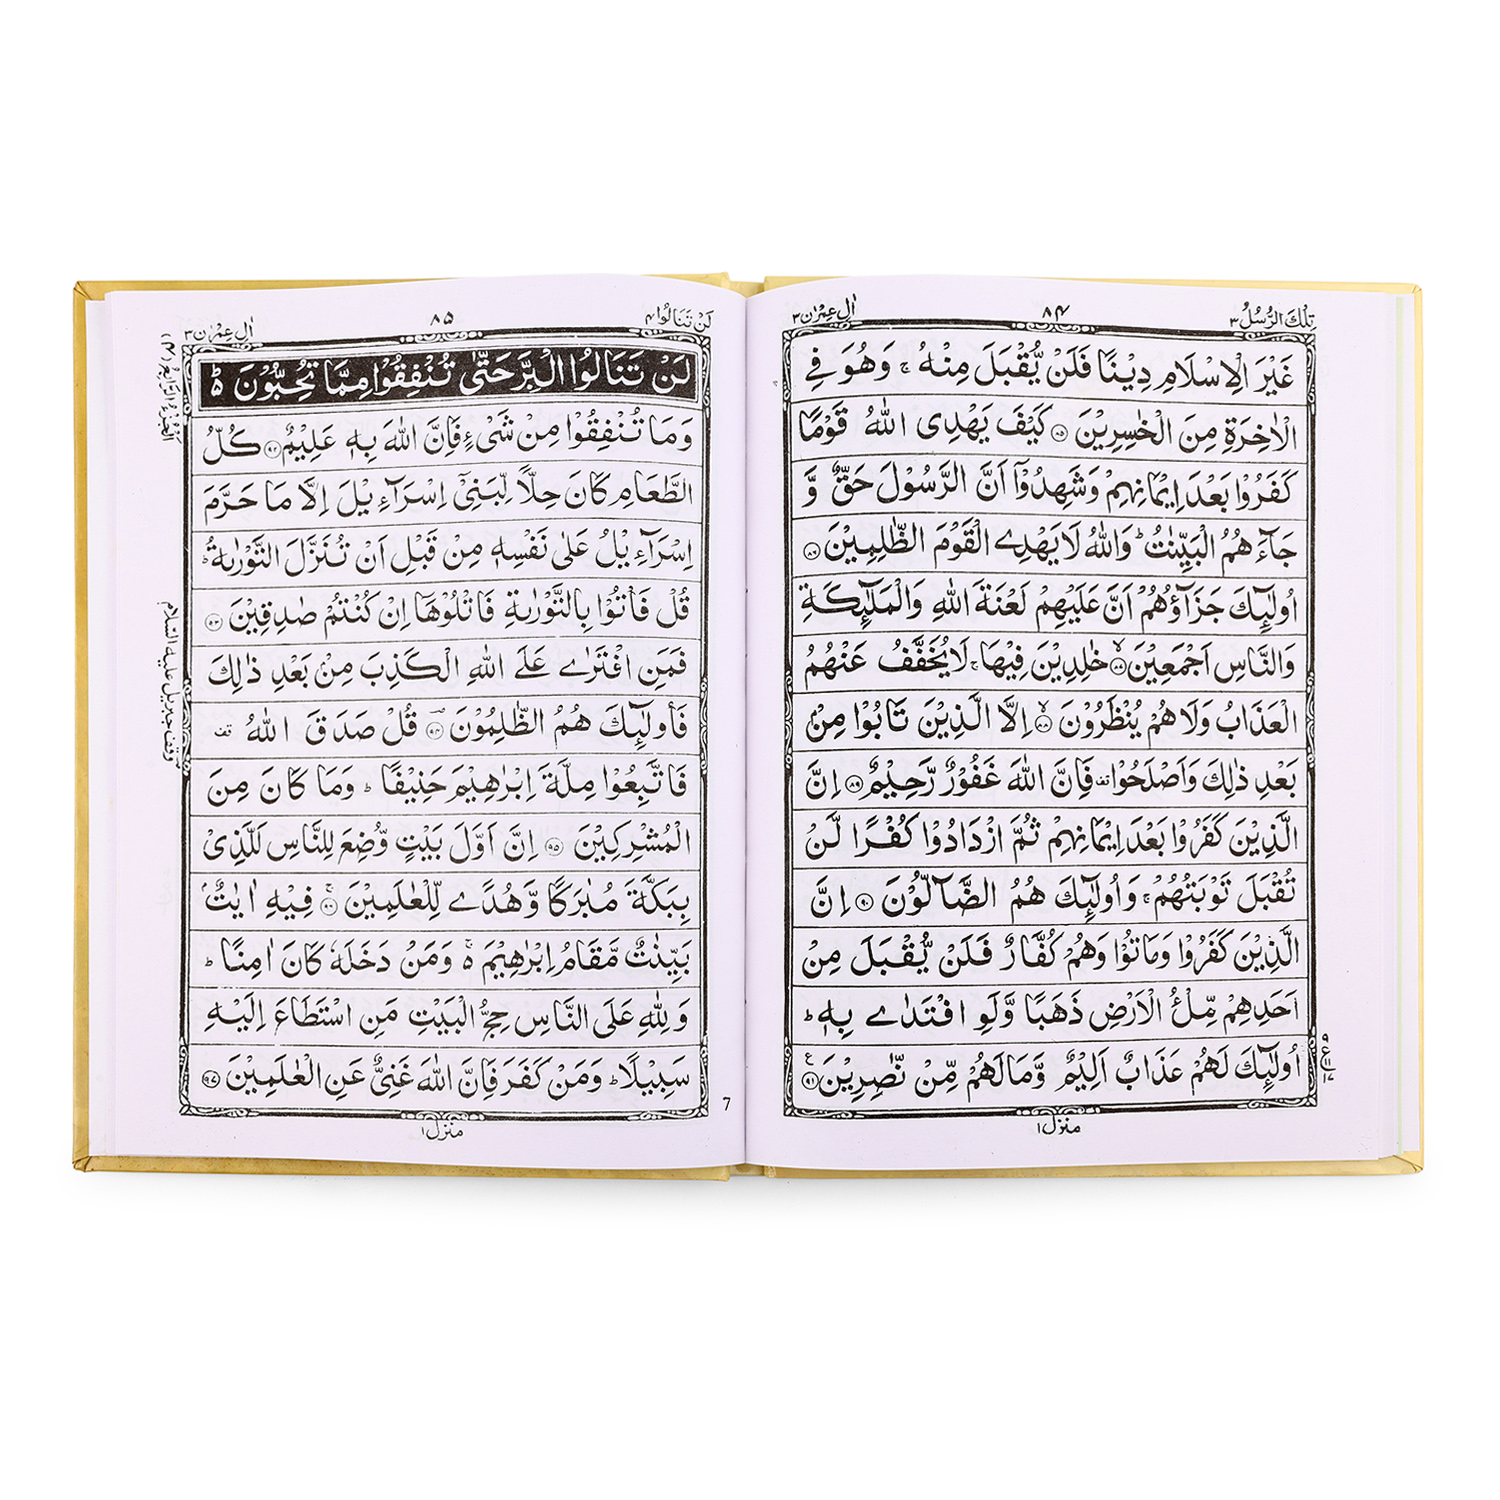 تِلْكَ الرُّسُلُ ٣
٨٤
اٰلِ عِمْرٰن ٣
غَيْرَ الْاِسْلَامِ دِيْنًا فَلَنْ يُّقْبَلَ مِنْهُ ۚ وَهُوَ فِي
الْاٰخِرَةِ مِنَ الْخٰسِرِيْنَ ۝٨٥ كَيْفَ يَهْدِى اللّٰهُ قَوْمًا
كَفَرُوْا بَعْدَ اِيْمَانِهِمْ وَشَهِدُوْٓا اَنَّ الرَّسُوْلَ حَقٌّ وَّ
جَآءَهُمُ الْبَيِّنٰتُ ؕ وَاللّٰهُ لَا يَهْدِى الْقَوْمَ الظّٰلِمِيْنَ ۝٨٦
اُولٰٓئِكَ جَزَآؤُهُمْ اَنَّ عَلَيْهِمْ لَعْنَةَ اللّٰهِ وَالْمَلٰٓئِكَةِ
وَالنَّاسِ اَجْمَعِيْنَ ۝٨٧ خٰلِدِيْنَ فِيْهَا ۚ لَا يُخَفَّفُ عَنْهُمُ
الْعَذَابُ وَلَا هُمْ يُنْظَرُوْنَ ۝٨٨ اِلَّا الَّذِيْنَ تَابُوْا مِنْۢ
بَعْدِ ذٰلِكَ وَاَصْلَحُوْا فَاِنَّ اللّٰهَ غَفُوْرٌ رَّحِيْمٌ ۝٨٩ اِنَّ
الَّذِيْنَ كَفَرُوْا بَعْدَ اِيْمَانِهِمْ ثُمَّ ازْدَادُوْا كُفْرًا لَّنْ
تُقْبَلَ تَوْبَتُهُمْ ۚ وَاُولٰٓئِكَ هُمُ الضَّآلُّوْنَ ۝٩٠ اِنَّ
الَّذِيْنَ كَفَرُوْا وَمَاتُوْا وَهُمْ كُفَّارٌ فَلَنْ يُّقْبَلَ مِنْ
اَحَدِهِمْ مِّلْءُ الْاَرْضِ ذَهَبًا وَّلَوِ افْتَدٰى بِهٖ ؕ
اُولٰٓئِكَ لَهُمْ عَذَابٌ اَلِيْمٌ وَّمَا لَهُمْ مِّنْ نّٰصِرِيْنَ ۝٩١
منزل ١
لَنْ تَنَالُوا ٤
٨٥
اٰلِ عِمْرٰن ٣
لَنْ تَنَالُوا الْبِرَّ حَتّٰى تُنْفِقُوْا مِمَّا تُحِبُّوْنَ ؕ
وَمَا تُنْفِقُوْا مِنْ شَىْءٍ فَاِنَّ اللّٰهَ بِهٖ عَلِيْمٌ ۝٩٢ كُلُّ
الطَّعَامِ كَانَ حِلًّا لِّبَنِىْٓ اِسْرَآءِيْلَ اِلَّا مَا حَرَّمَ
اِسْرَآءِيْلُ عَلٰى نَفْسِهٖ مِنْ قَبْلِ اَنْ تُنَزَّلَ التَّوْرٰىةُ ؕ
قُلْ فَاْتُوْا بِالتَّوْرٰىةِ فَاتْلُوْهَآ اِنْ كُنْتُمْ صٰدِقِيْنَ ۝٩٣
فَمَنِ افْتَرٰى عَلَى اللّٰهِ الْكَذِبَ مِنْۢ بَعْدِ ذٰلِكَ
فَاُولٰٓئِكَ هُمُ الظّٰلِمُوْنَ ۝٩٤ قُلْ صَدَقَ اللّٰهُ
فَاتَّبِعُوْا مِلَّةَ اِبْرٰهِيْمَ حَنِيْفًا ؕ وَمَا كَانَ مِنَ
الْمُشْرِكِيْنَ ۝٩٥ اِنَّ اَوَّلَ بَيْتٍ وُّضِعَ لِلنَّاسِ لَلَّذِىْ
بِبَكَّةَ مُبٰرَكًا وَّهُدًى لِّلْعٰلَمِيْنَ ۝ فِيْهِ اٰيٰتٌۢ
بَيِّنٰتٌ مَّقَامُ اِبْرٰهِيْمَ ۚ وَمَنْ دَخَلَهٗ كَانَ اٰمِنًا ؕ
وَلِلّٰهِ عَلَى النَّاسِ حِجُّ الْبَيْتِ مَنِ اسْتَطَاعَ اِلَيْهِ
سَبِيْلًا ؕ وَمَنْ كَفَرَ فَاِنَّ اللّٰهَ غَنِىٌّ عَنِ الْعٰلَمِيْنَ ۝٩٧
الْجُزْءُ الرَّابِعُ (٤)
وقف جبريل عليه السلام
منزل ١
7